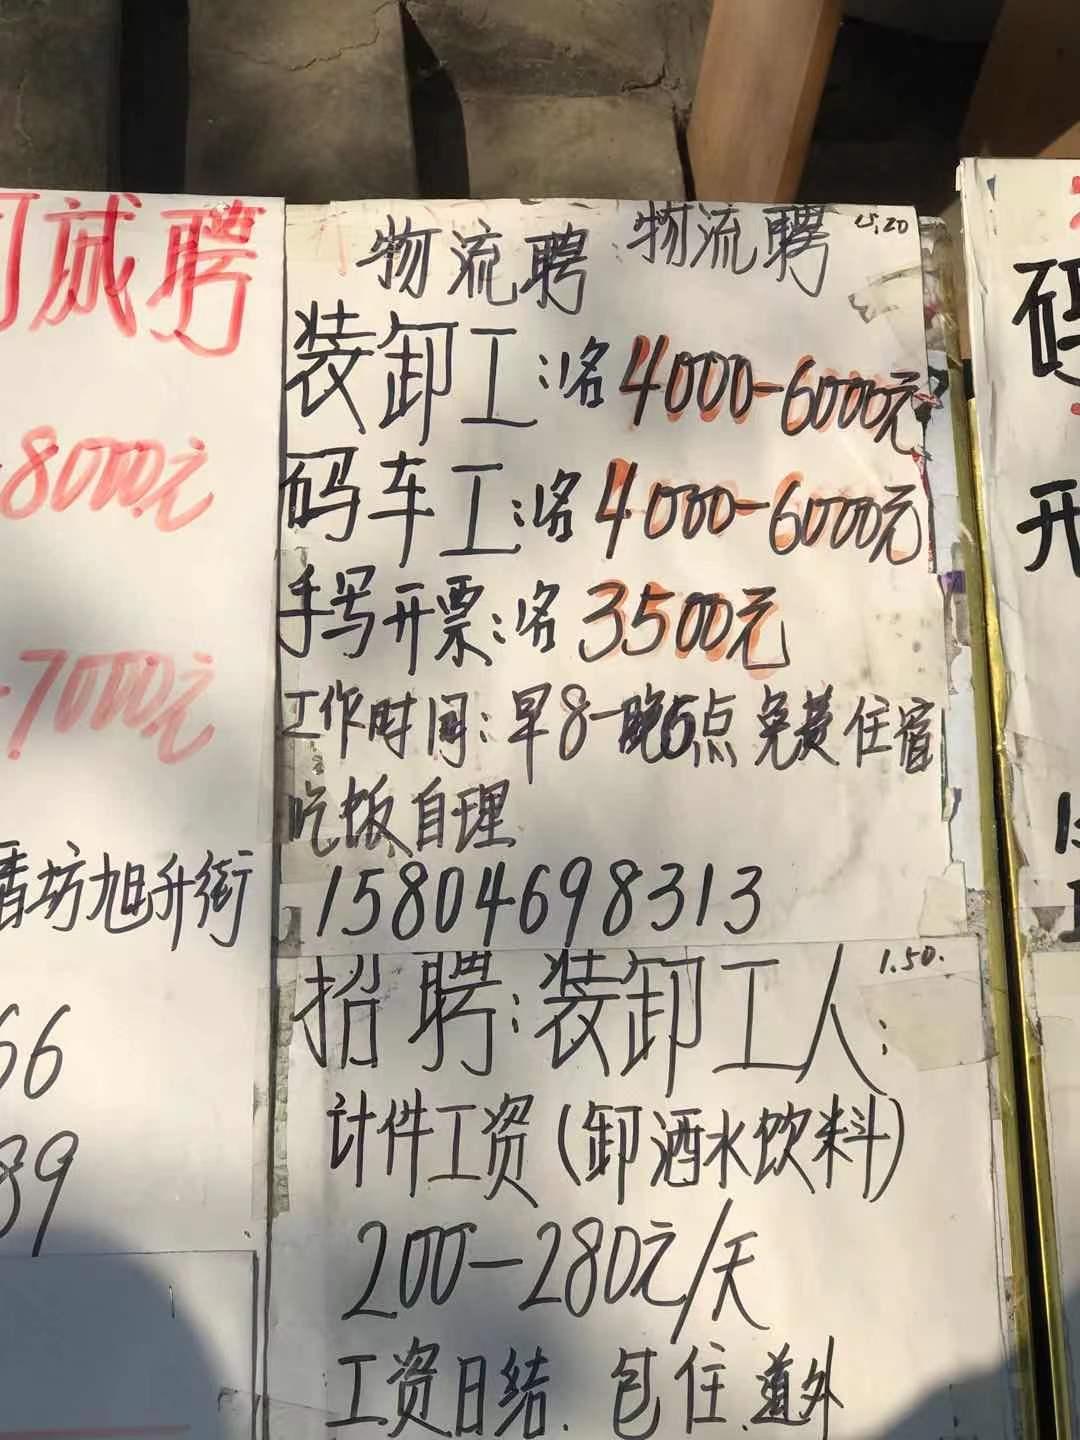 聘
8000元
7000元
香坊旭升街
66
89
物流聘 物流聘
装卸工:名4000-6000元
码车工:名4000-6000元
手写开票:名3500元
工作时间:早8-晚5点免费住宿
吃饭自理
15804698313
招聘:装卸工人: 1.50.
计件工资(卸酒水饮料)
200-280元/天
工资日结.包住.道外
码
开